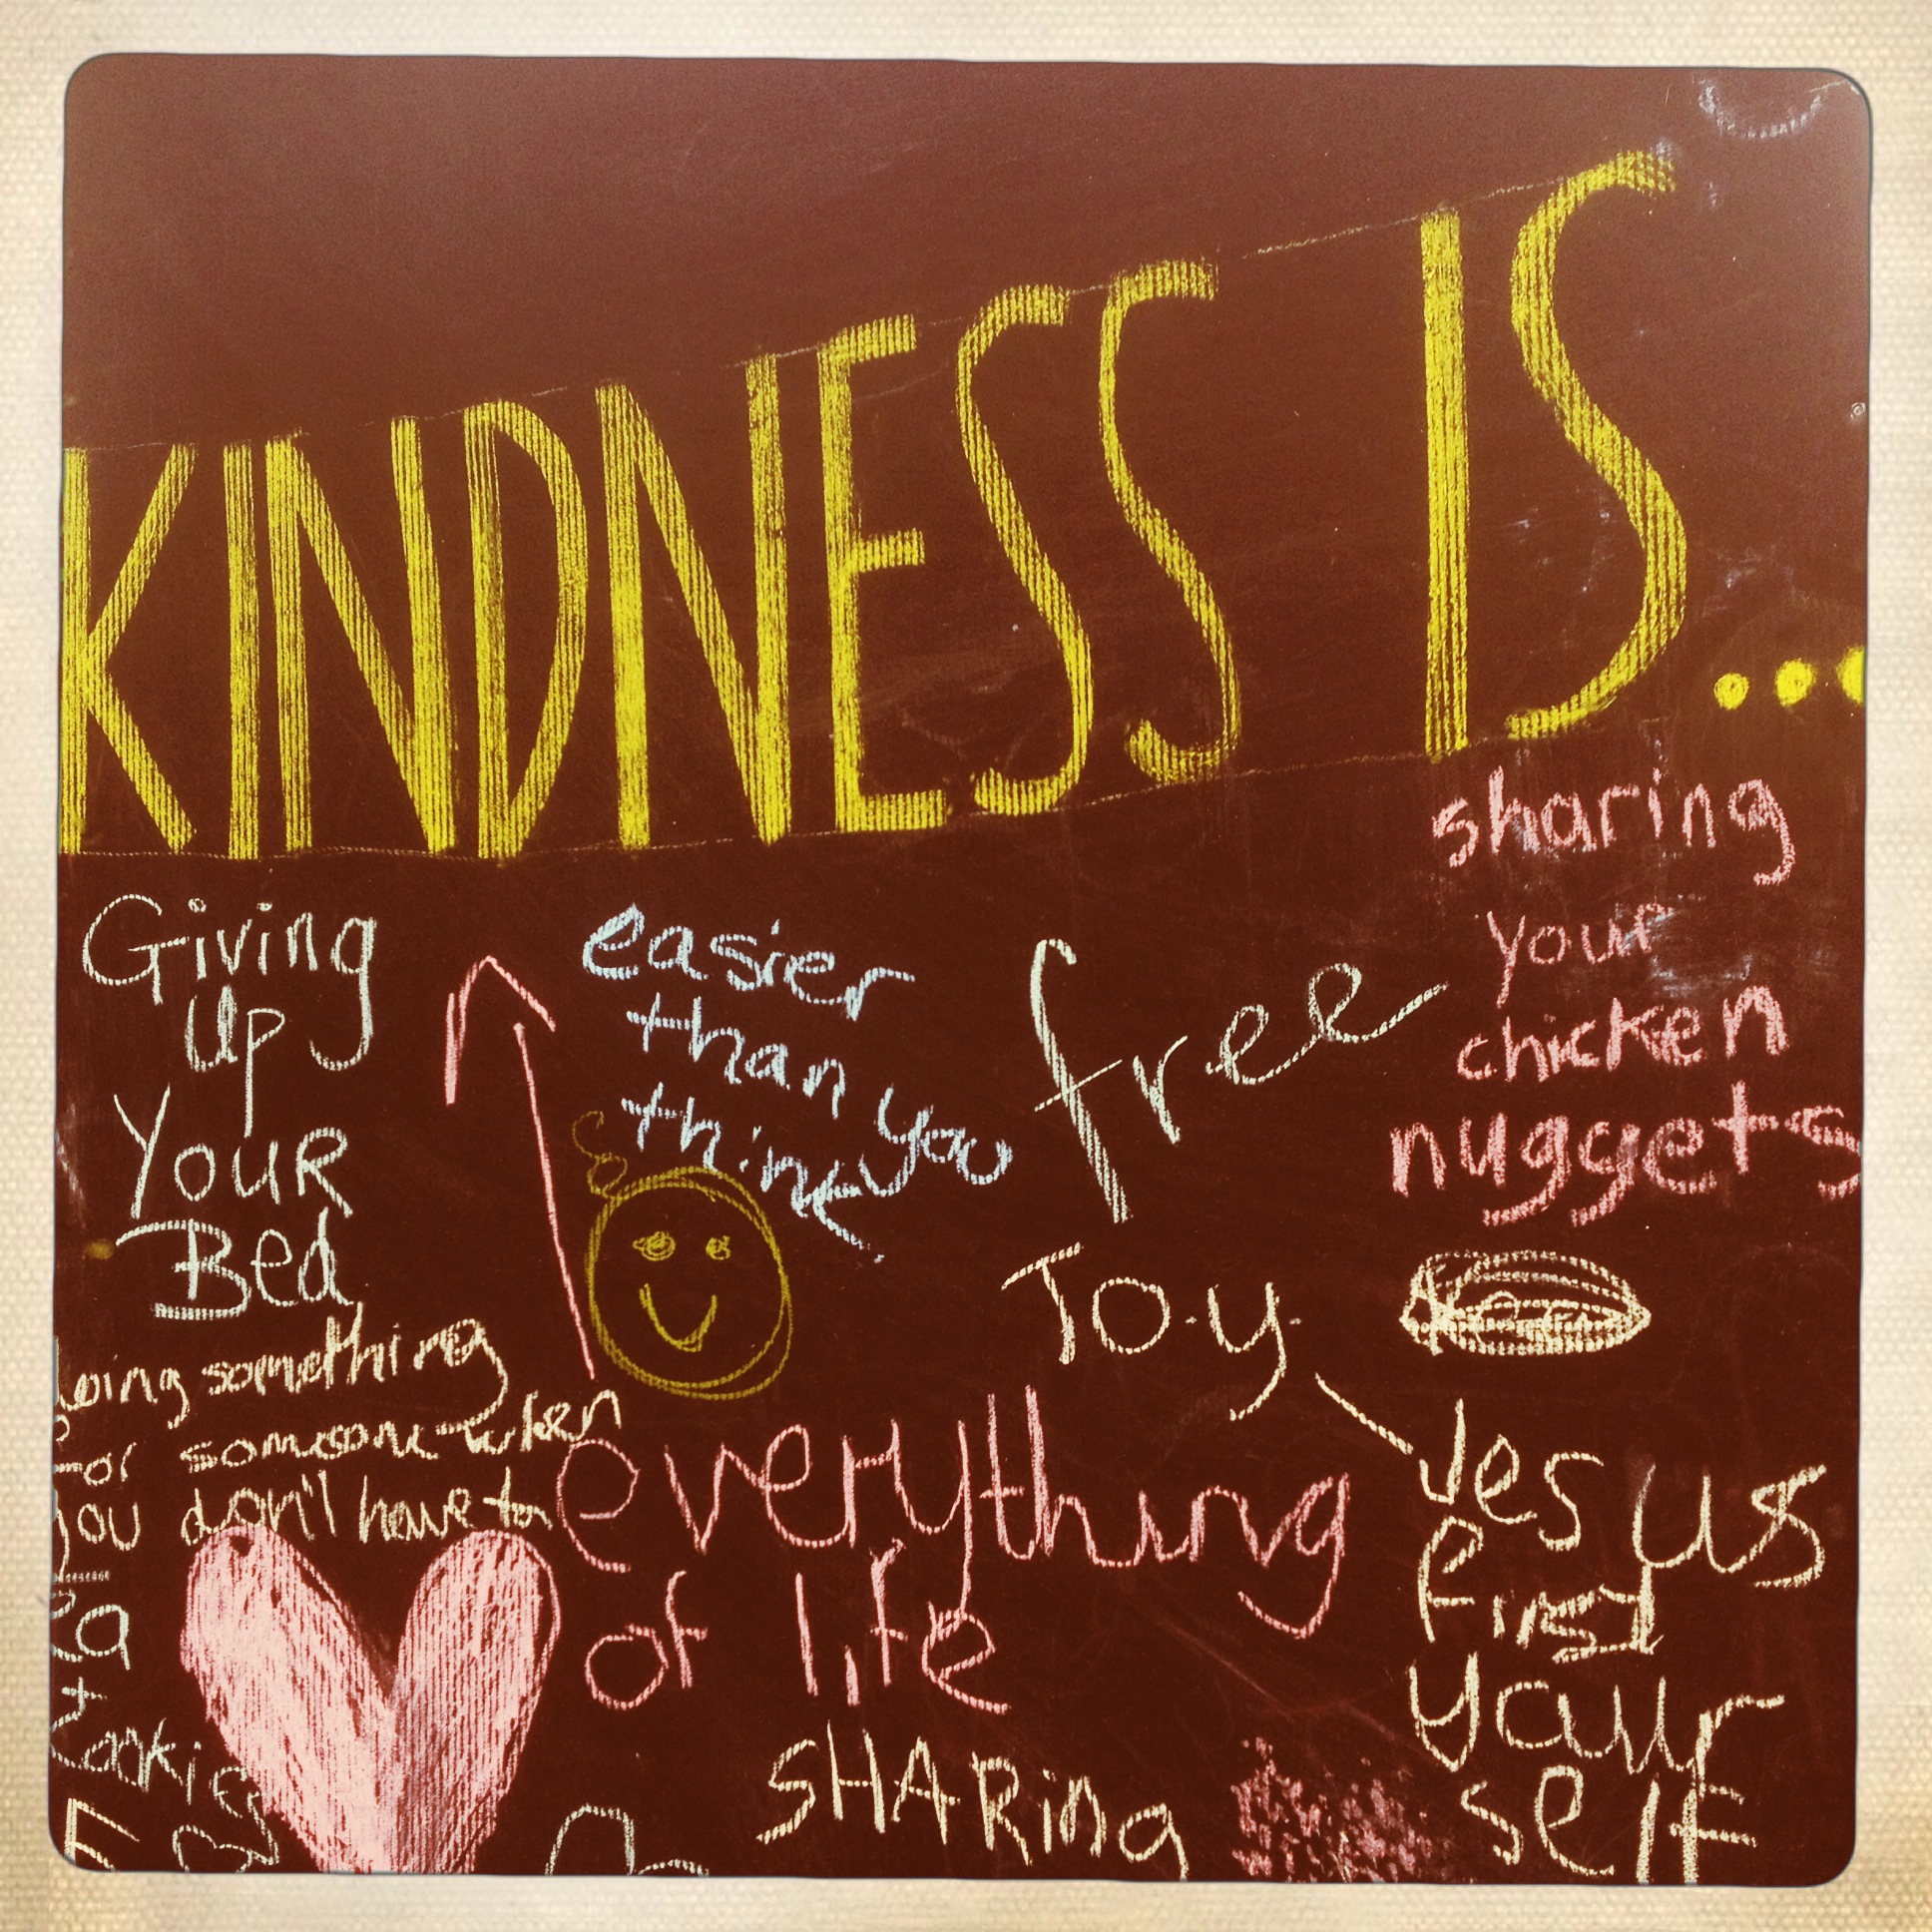 KINDNESS IS...
Giving
Up
Your
Bed
easier
than you
think
free
sharing
your
chicken
nuggets
doing something
for someone when
you don't have to
Joy
Jesus
First
your
self
everything
of life
SHARing